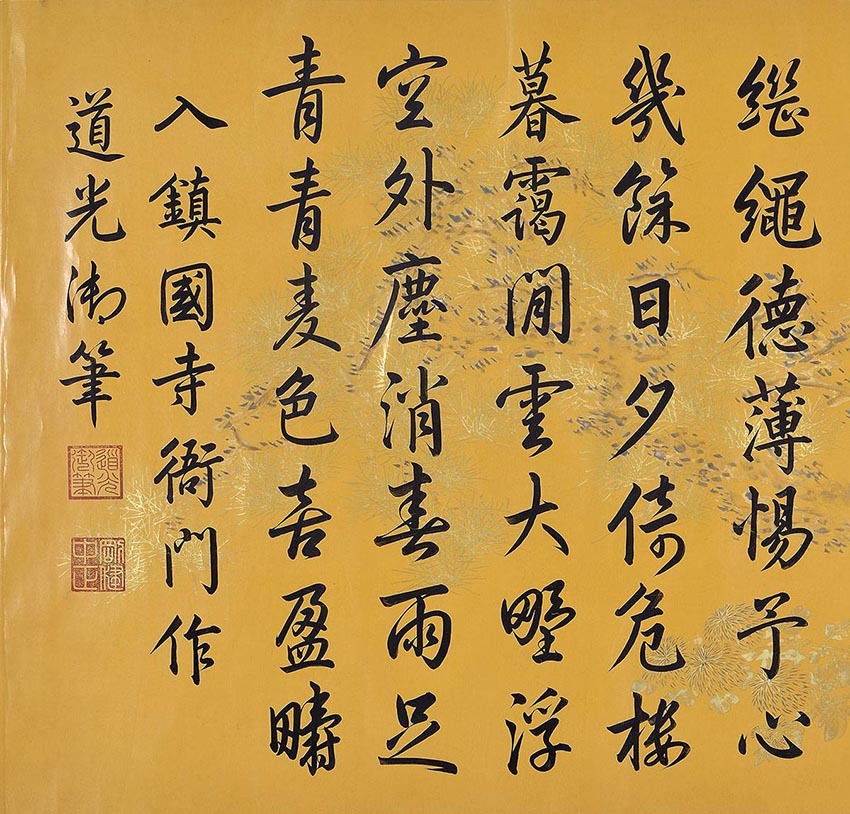 繼繩德薄惕予心
幾餘日夕倚危樓
暮靄閒雲大野浮
空外塵消春雨足
青青麦色喜盈疇
入鎮國寺衙門作
道光御筆
道光御筆